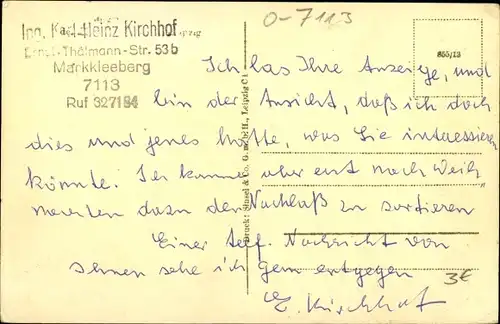 O-7113
Ing. Karl-Heinz Kirchhof
Ernst-Thälmann-Str. 53b
Markkleeberg
7113
Ruf 327184
855/13
Ich las Ihre Anzeige, und
bin der Ansicht, daß ich doch
dies und jenes hätte, was Sie interessieren
könnte. Ich komme aber erst nach Weih-
nachten dazu den Nachlaß zu sortieren
Einer telf. Nachricht von
Ihnen sehe ich gern entgegen
3€
E. Kirchhof
Druck: & Co. G.m.b.H., Leipzig C 1